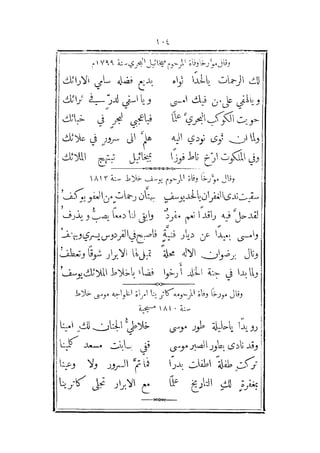 ١٠٤
وقال مؤرخاً وفاة المرحوم ميخائيل البحري سنة ١٧٩٩م
لك الرحمات يا لحداً ثواه بديع فضله سامي الارائك
ويالهفي على من فيك امسى ويا اسفي لدرّ في ترائك
حويت الكوكب البحري علماً فيا عجبي لبحر في خبائك
ولما ان ثوى نودي اليه هلمّ الى سرور في علائك
وفي الملكوت ارّخ ناط فوزاً بميخائيل تبتهج الملائك
وقال مؤرخاً وفاة المرحوم يوسف خلاط سنة ١٨١٣
سقيت ندى الغفران يا لحد يوسف بهتّان رحمات من العفو يوكف
لقد حلّ فيه راقداً نعم مفرد وابقى لنا دمعاً يصبّ ويذرف
وامسى بعيداً عن ديار فنية فاصبح في الفردوس يسري ويهتف
ونال برضوان الاله محلة تميل لها الابرار شوقاً وتعطف
ولما بدا في جنة الخلد أرخوا فضاء باخلاط الملائك يوسف
وقال مورخاً وفاة المرحومه كاترينا امرأة الخواجه موسى خلاط
سنة ١٨١٠ مسيحية
رويداً يا حليلة طور موسى خلاطيّ الجنان لك امينا
وقد نادى بطور الصبر موسى قفي باينت مسعد كلينا
تركت طفلة اطفلت بدراً فما تمّ السرور ولا وعينا
بمغفرة لك التاريخ علماً مع الابرار تجلى كاترينا